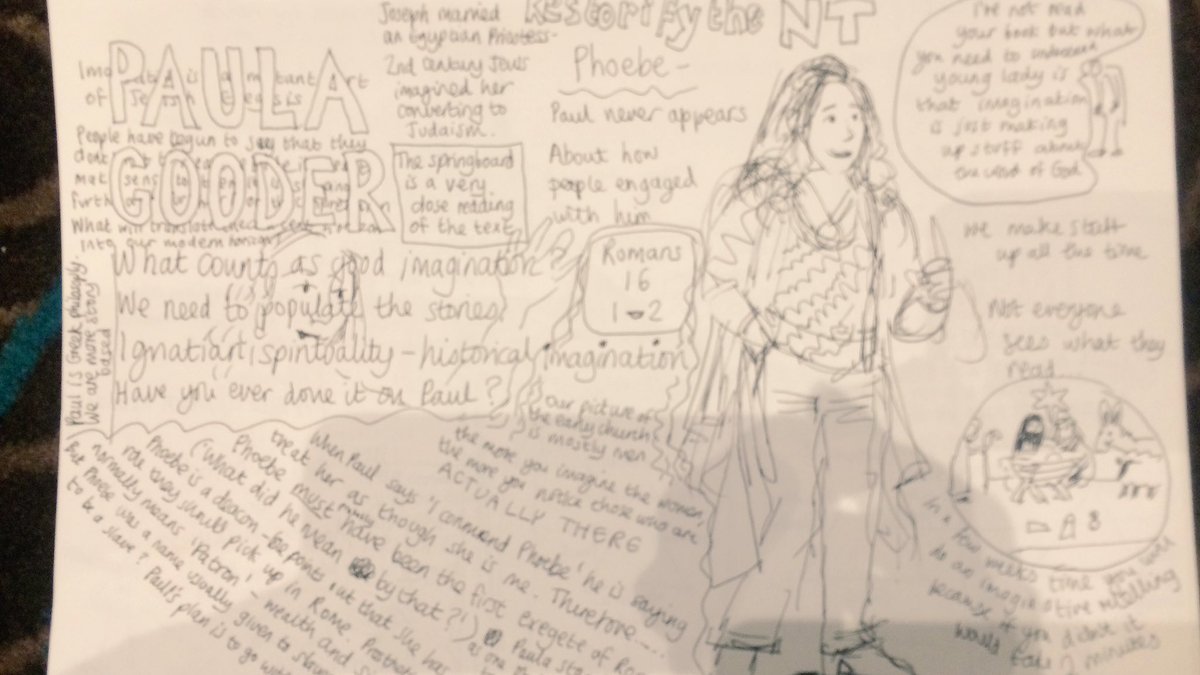 Restorify the NT
PAULA
GOODER
of Jewish
People have begun to say that they
What
into our modern horizon?
Joseph married
an Egypian Priestess-
2nd century Jews
imagined her
converting to
Judaism.
The springboard
is a very
close reading
of the text
Phoebe -
Paul never appears
About how
people engaged
with him
Romans
16
1-2
I've not read
your book but what
you need to understand
young lady is
that imagination
is just making
up stuff about
the word of God
we make stuff
up all the time
Not everyone
sees what they
read
What counts as good imagination?
We need to populate the stories.
Ignatian spirituality - historical imagination
Have you ever done it on Paul?
Paul is Greek philosophy.
We are more story
based
Our picture of
the early church
is mostly men
the more you imagine the women,
the more you notice those who are
ACTUALLY THERE
When Paul says 'I commend Phoebe' he is saying
treat her as though she is me. Therefore.....
Phoebe must have been the first exegete of
('What did he mean by that?')
Phoebe is a deacon - he points out that she has
role they should pick up in Rome.
normally means 'Patron' - wealth and
But Phoebe was a name usually given to
to be a slave? Paul's plan is to go
In a few weeks time you would
do an imaginative retelling
because if you didn't it
would take 2 minutes